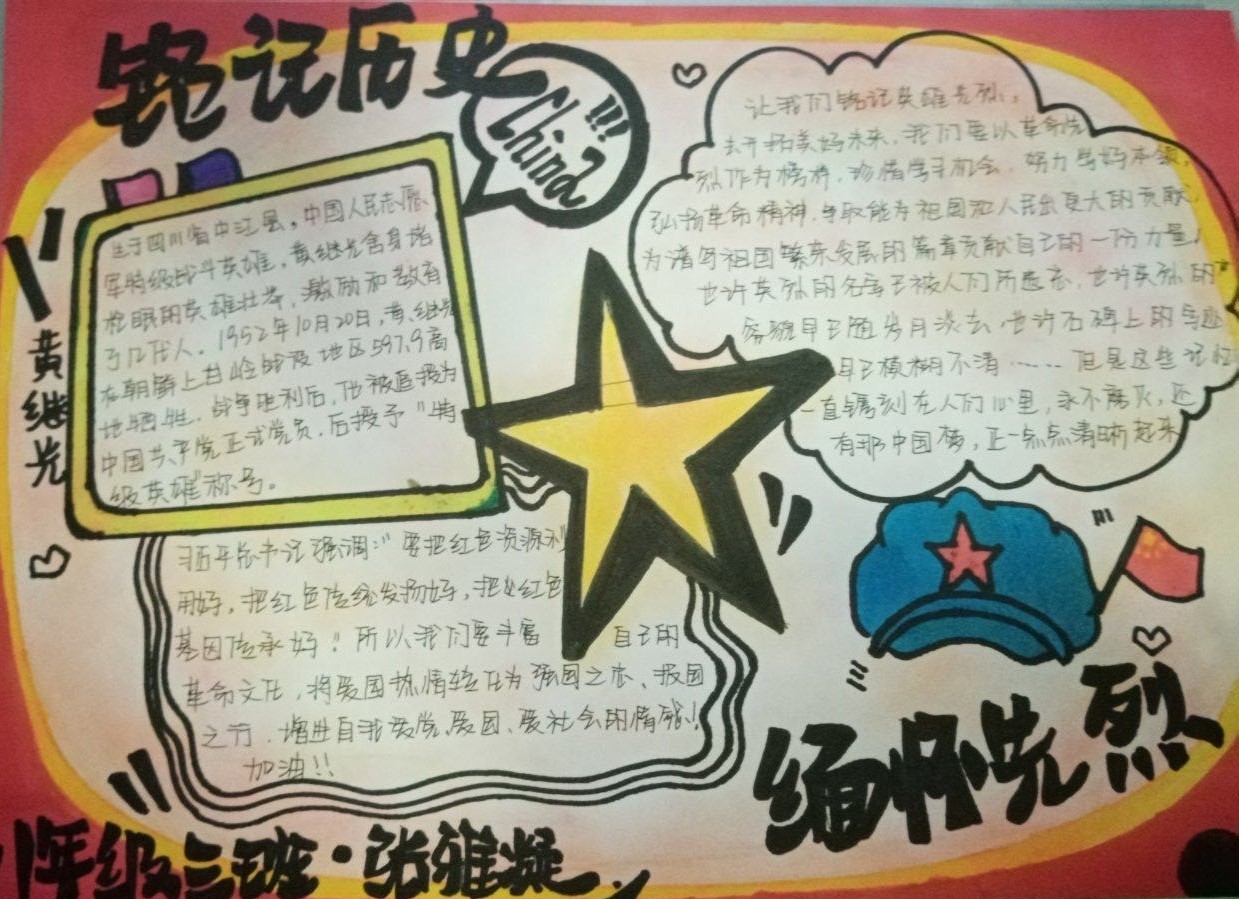 铭记历史
China!!!
黄继光
生于四川省中江县，中国人民志愿
军特级战斗英雄，黄继光舍身堵
枪眼的英雄壮举，激励和教育
了几代人。1952年10月20日，黄继光
在朝鲜上甘岭战役地区597.9高
地牺牲。战争胜利后，他被追授为
中国共产党正式党员，后授予“特
级英雄”称号。
让我们铭记英雄先烈，
去开拓美好未来，我们要以革命先
烈作为榜样，珍惜学习机会，努力学好本领，
弘扬革命精神，争取能为祖国和人民出更大的贡献
为谱写祖国繁荣发展的篇章贡献自己的一份力量！
也许英烈的名字已被人们所遗忘，也许英烈的
容貌早已随岁月淡去，也许石碑上的字迹
早已模糊不清……但是这些记忆
一直镌刻在人们心里，永不磨灭，还
有那中国梦，正一点点清晰起来
习近平总书记强调：“要把红色资源利
用好，把红色传统发扬好，把红色
基因传承好”所以我们要丰富 自己的
革命文化，将爱国热情转化为强国之志、报国
之行，增进自我爱党、爱国、爱社会的情感！
加油！！
缅怀先烈
年级三班·张雅凝